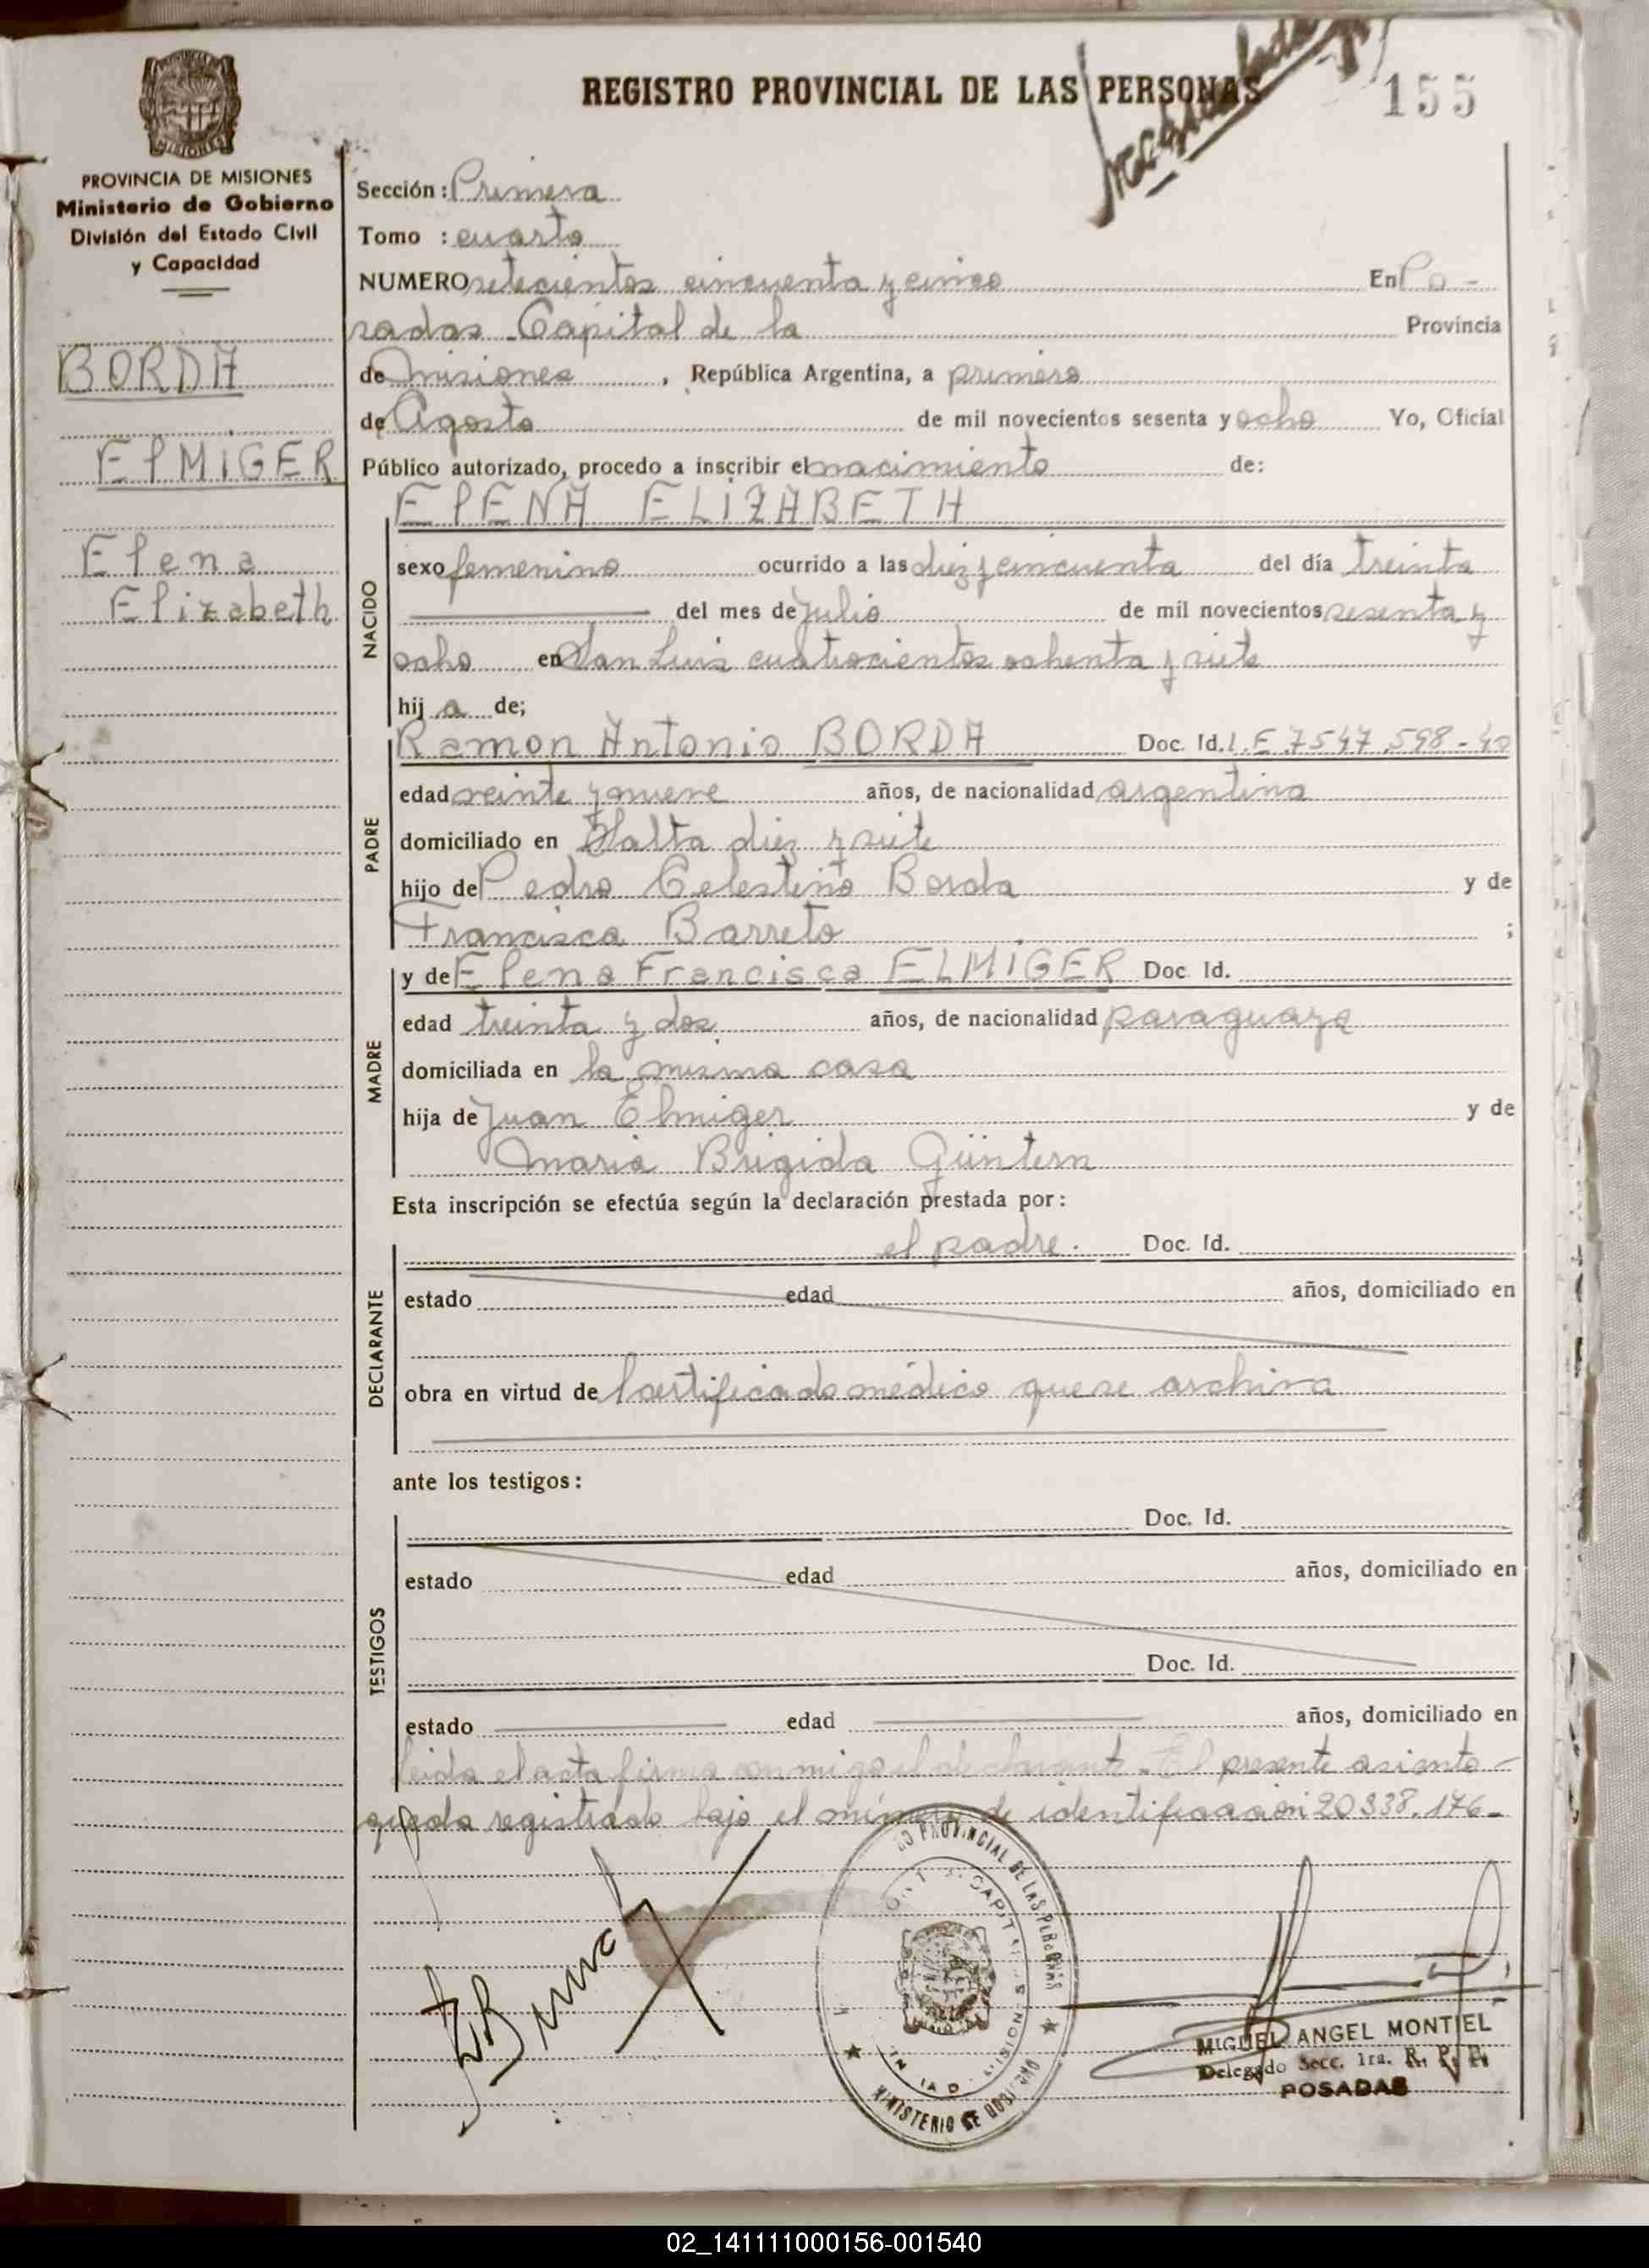 REGISTRO PROVINCIAL DE LAS PERSONAS
155
MISIONES
PROVINCIA DE MISIONES
Ministerio de Gobierno
División del Estado Civil
y Capacidad
BORDA
ElMiGER
Elena
Elizabeth
Sección: Primera
Tomo : cuarto
NUMERO setecientos cincuenta y cinco En Po-
sadas Capital de la Provincia
de Misiones, República Argentina, a primero
de Agosto de mil novecientos sesenta y ocho Yo, Oficial
Público autorizado, procedo a inscribir el nacimiento de:
ElENA ELiZABETH
NACIDO
sexo femenino ocurrido a las diez y cincuenta del día treinta
del mes de julio de mil novecientos sesenta y
ocho en San Luis cuatrocientos ochenta y siete
hij a de;
PADRE
Ramon Antonio BORDA Doc. Id. L.E. 7547.598-40
edad veinte y nueve años, de nacionalidad argentina
domiciliado en Salta diez y siete
hijo de Pedro Celestino Borda y de
Francisca Barreto ;
MADRE
y de Elena Francisca ELMiGER Doc. Id.
edad treinta y dos años, de nacionalidad paraguaya
domiciliada en la misma casa
hija de Juan Elmiger y de
Maria Brigida Güntern
Esta inscripción se efectúa según la declaración prestada por:
DECLARANTE
el padre. Doc. Id.
estado edad años, domiciliado en
obra en virtud de certificado médico que se archiva
ante los testigos:
TESTIGOS
Doc. Id.
estado edad años, domiciliado en
Doc. Id.
estado edad años, domiciliado en
leida el acta firma conmigo el declarante. El presente asiento
queda registrado bajo el número de identificación 20.338.176-
PROVINCIAL DE LAS PERSONAS
MINISTERIO DE GOBIERNO
MIGUEL ANGEL MONTIEL
Delegado Secc. 1ra. R. P. P.
POSADAS
02_141111000156-001540